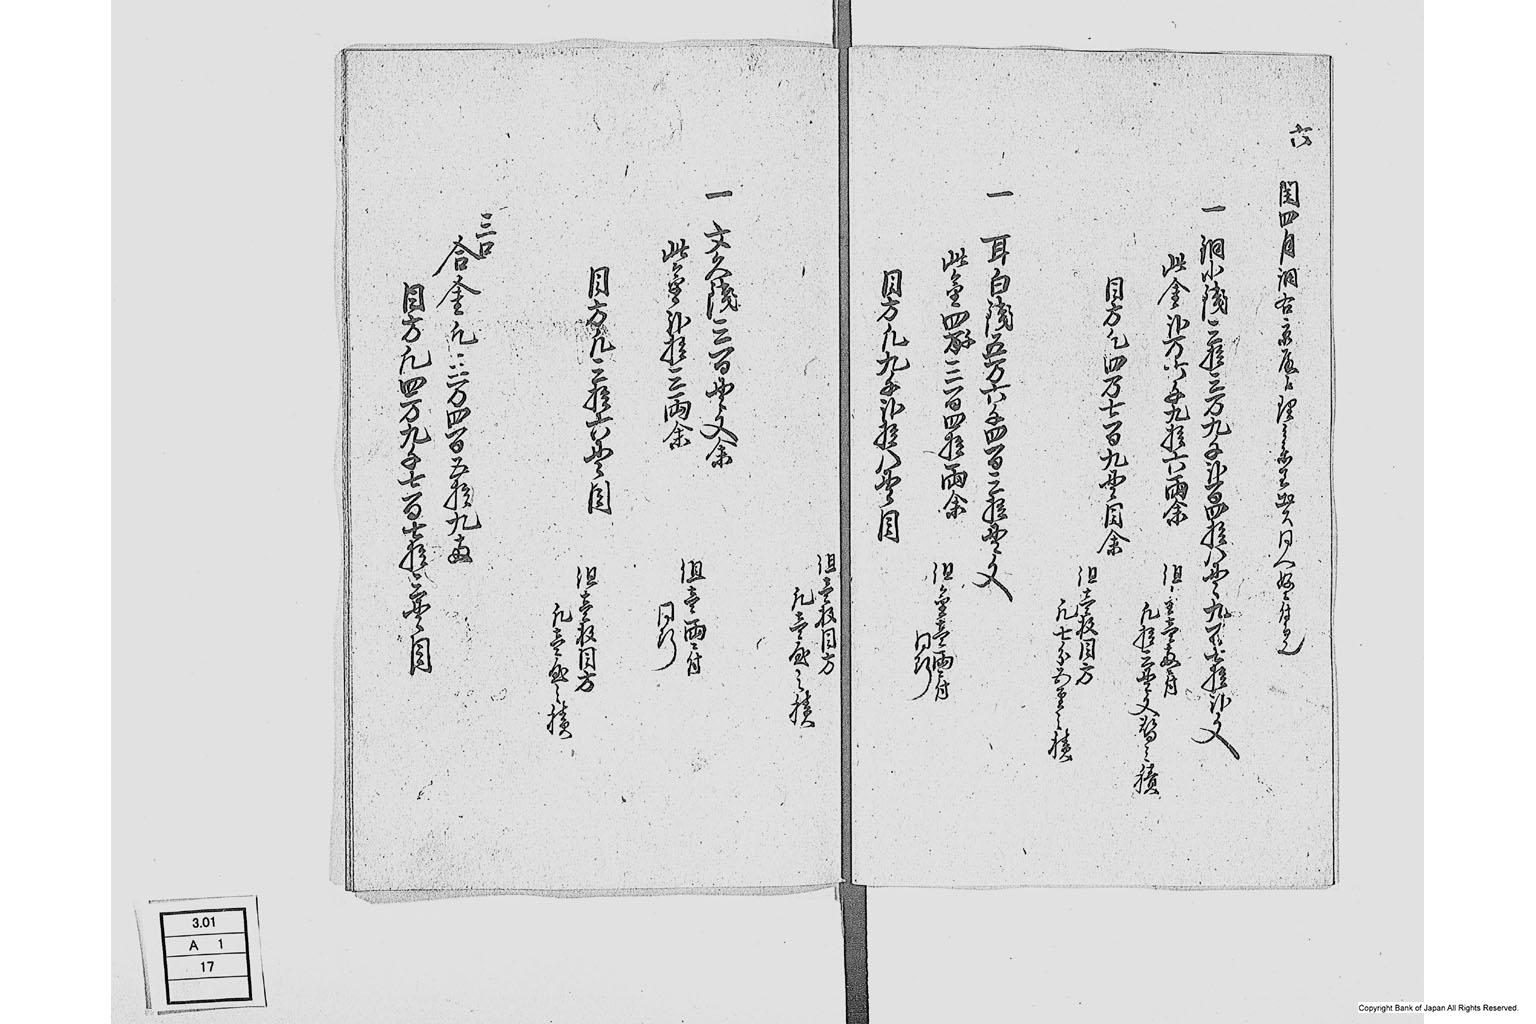 六
閏四月
一 銅小銭三拾三万九千弐百四拾八貫九百七拾弐文
此金弐万六千九拾六両余
但金壱両ニ付
凡拾三貫文替之積
目方凡四万七百九貫目余
但壱枚目方
凡七分五
之積
一 耳白銭五万六千四百三拾貫文
此金四千三百四拾両余
但金壱両ニ付
同断
目方凡九千弐拾八貫目
但壱枚目方
凡壱匁之積
一 文久銭三百貫文余
此金弐拾三両余
但壱両ニ付
同断
目方凡三拾六貫目
但壱枚目方
凡壱匁
之積
三口
合金凡三万四百五拾九両
目方凡四万九千七百七拾三貫目
3.01
A 1
17
Copyright Bank of Japan All Rights Reserved.